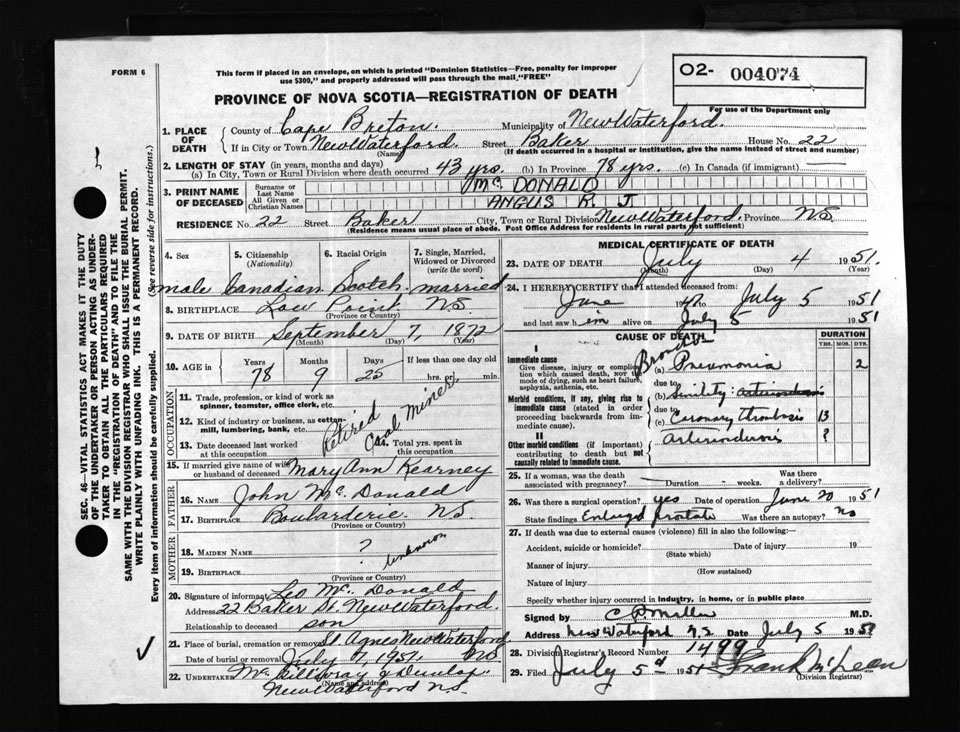 FORM 6
This form if placed in an envelope, on which is printed "Dominion Statistics—Free, penalty for improper
use $300," and properly addressed will pass through the mail, "FREE"
02- 004074
PROVINCE OF NOVA SCOTIA—REGISTRATION OF DEATH
For use of the Department only
1. PLACE OF DEATH
County of Cape Breton. Municipality of New Waterford.
If in City or Town New Waterford. Street Baker House No. 22
(Name) (If death occurred in a hospital or institution, give the name instead of street and number)
2. LENGTH OF STAY (in years, months and days)
(a) In City, Town or Rural Division where death occurred 43 yrs. (b) In Province 78 yrs. (c) In Canada (if immigrant)
3. PRINT NAME OF DECEASED
Surname or Last Name Mc. DONALD
All Given or Christian Names ANGUS R. J.
RESIDENCE No. 22 Street Baker City, Town or Rural Division New Waterford. Province N.S.
(Residence means usual place of abode. Post Office Address for residents in rural parts not sufficient)
4. Sex
5. Citizenship (Nationality)
6. Racial Origin
7. Single, Married, Widowed or Divorced (write the word)
male Canadian Scotch married
8. BIRTHPLACE Low Point N.S.
(Province or Country)
9. DATE OF BIRTH September 7, 1872
(Month) (Day) (Year)
10. AGE in Years Months Days If less than one day old
78 9 25 hrs. or min.
OCCUPATION
11. Trade, profession, or kind of work as
spinner, teamster, office clerk, etc.
12. Kind of industry or business, as cotton-
mill, lumbering, bank, etc.
Retired Coal Miner
13. Date deceased last worked at this occupation
14. Total yrs. spent in this occupation
15. If married give name of wife or husband of deceased Mary Ann Kearney
FATHER
16. NAME John Mc. Donald
17. BIRTHPLACE Boularderie N.S.
(Province or Country)
MOTHER
18. MAIDEN NAME ?
unknown
19. BIRTHPLACE
(Province or Country)
20. Signature of informant Leo Mc. Donald
Address 22 Baker St. New Waterford.
Relationship to deceased son
21. Place of burial, cremation or removal St. Agnes New Waterford
Date of burial or removal July 7, 1951. N.S.
22. UNDERTAKER Mc Gillivray & Dunlop
(Name and address)
New Waterford N.S.
MEDICAL CERTIFICATE OF DEATH
23. DATE OF DEATH July 4 1951.
(Month) (Day) (Year)
24. I HEREBY CERTIFY that I attended deceased from:
June 1947 to July 5 1951
and last saw him alive on July 5 1951
CAUSE OF DEATH
DURATION
YRS. MOS. DYS.
I
Immediate cause
Give disease, injury or complication which caused death, not the mode of dying, such as heart failure, asphyxia, asthenia, etc.
(a) Broncho Pneumonia 2
due to
Morbid conditions, if any, giving rise to immediate cause (stated in order proceeding backwards from immediate cause).
(b) Senility:
due to
(c) Coronary thrombosis 13
II
Other morbid conditions (if important) contributing to death but not causally related to immediate cause.
?
25. If a woman, was the death associated with pregnancy? — Duration - weeks. Was there a delivery? —
26. Was there a surgical operation? yes Date of operation June 20 1951
State findings Enlarged prostate Was there an autopsy? no
27. If death was due to external causes (violence) fill in also the following:
Accident, suicide or homicide? Date of injury 19
(State which)
Manner of injury
(How sustained)
Nature of injury
Specify whether injury occurred in industry, in home, or in public place
Signed by M.D.
Address New Waterford N.S. Date July 5 1951
28. Division Registrar's Record Number 1499
29. Filed July 5th 1951 Frank McLean
(Division Registrar)
SEC. 46—VITAL STATISTICS ACT MAKES IT THE DUTY
OF THE UNDERTAKER OR PERSON ACTING AS UNDER-
TAKER TO OBTAIN ALL THE PARTICULARS REQUIRED
IN THE "REGISTRATION OF DEATH" AND TO FILE THE
SAME WITH THE DIVISION REGISTRAR WHO SHALL ISSUE THE BURIAL PERMIT.
WRITE PLAINLY WITH UNFADING INK. THIS IS A PERMANENT RECORD.
Every item of information should be carefully supplied. (See reverse side for instructions.)